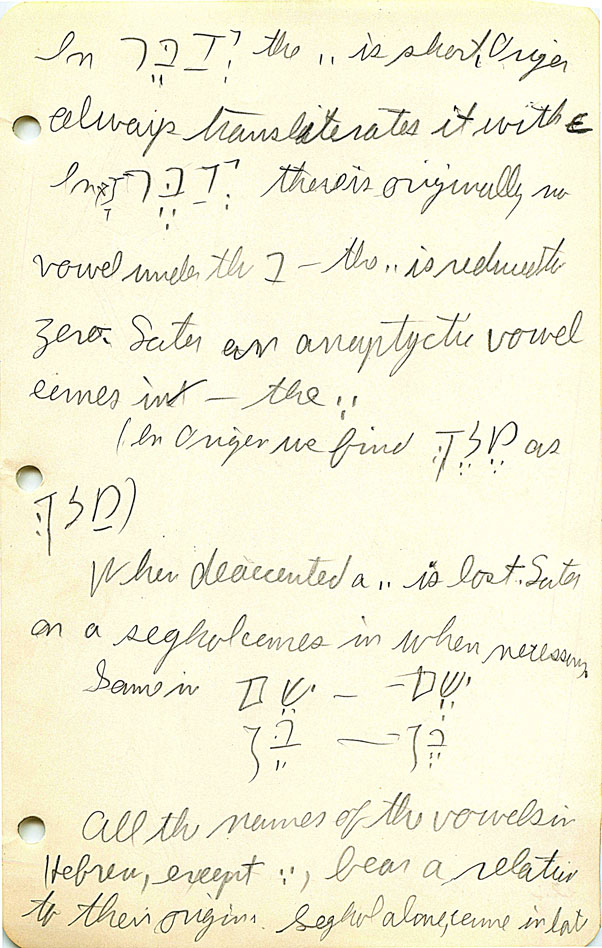 In יְדַבֵּר the .. is short, Origen
always transliterates it with ε
In יְדַבֶּר there is originally no
vowel under the ב – the .. is reduced to
zero. Later an anaptyctic vowel
comes in – the ֶ
(In Origen we find מֶלֶךְ as
מַלךְ)
When deaccented a .. is lost. Later
on a seghol comes in when necessary.
Same in יֵשׁ ם – יֶשׁ ם־
בֵּן — בֶּן
All the names of the vowels in
Hebrew, except ֶ, bear a relation
to their origin. Seghol alone, came in late